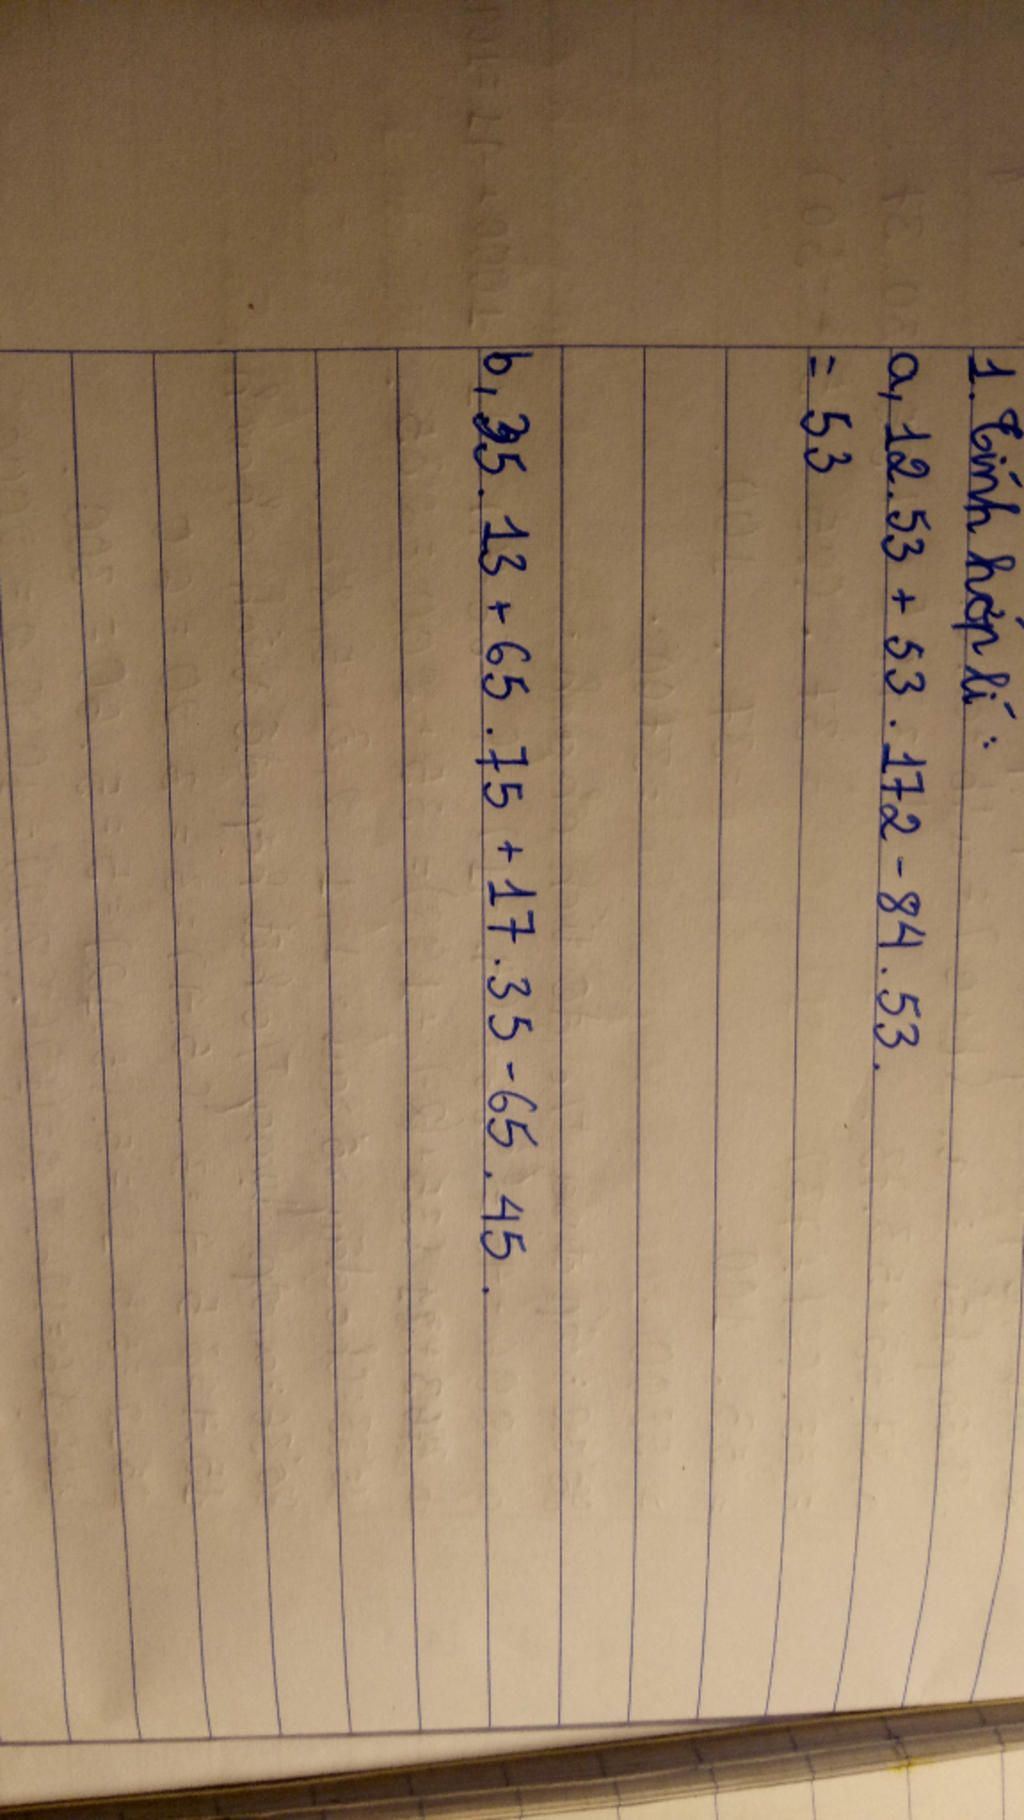 1. Tính hợp lí :
a, 12.53 + 53.172 - 84.53.
= 53
b, 35.13 + 65.75 + 17.35 - 65.45.